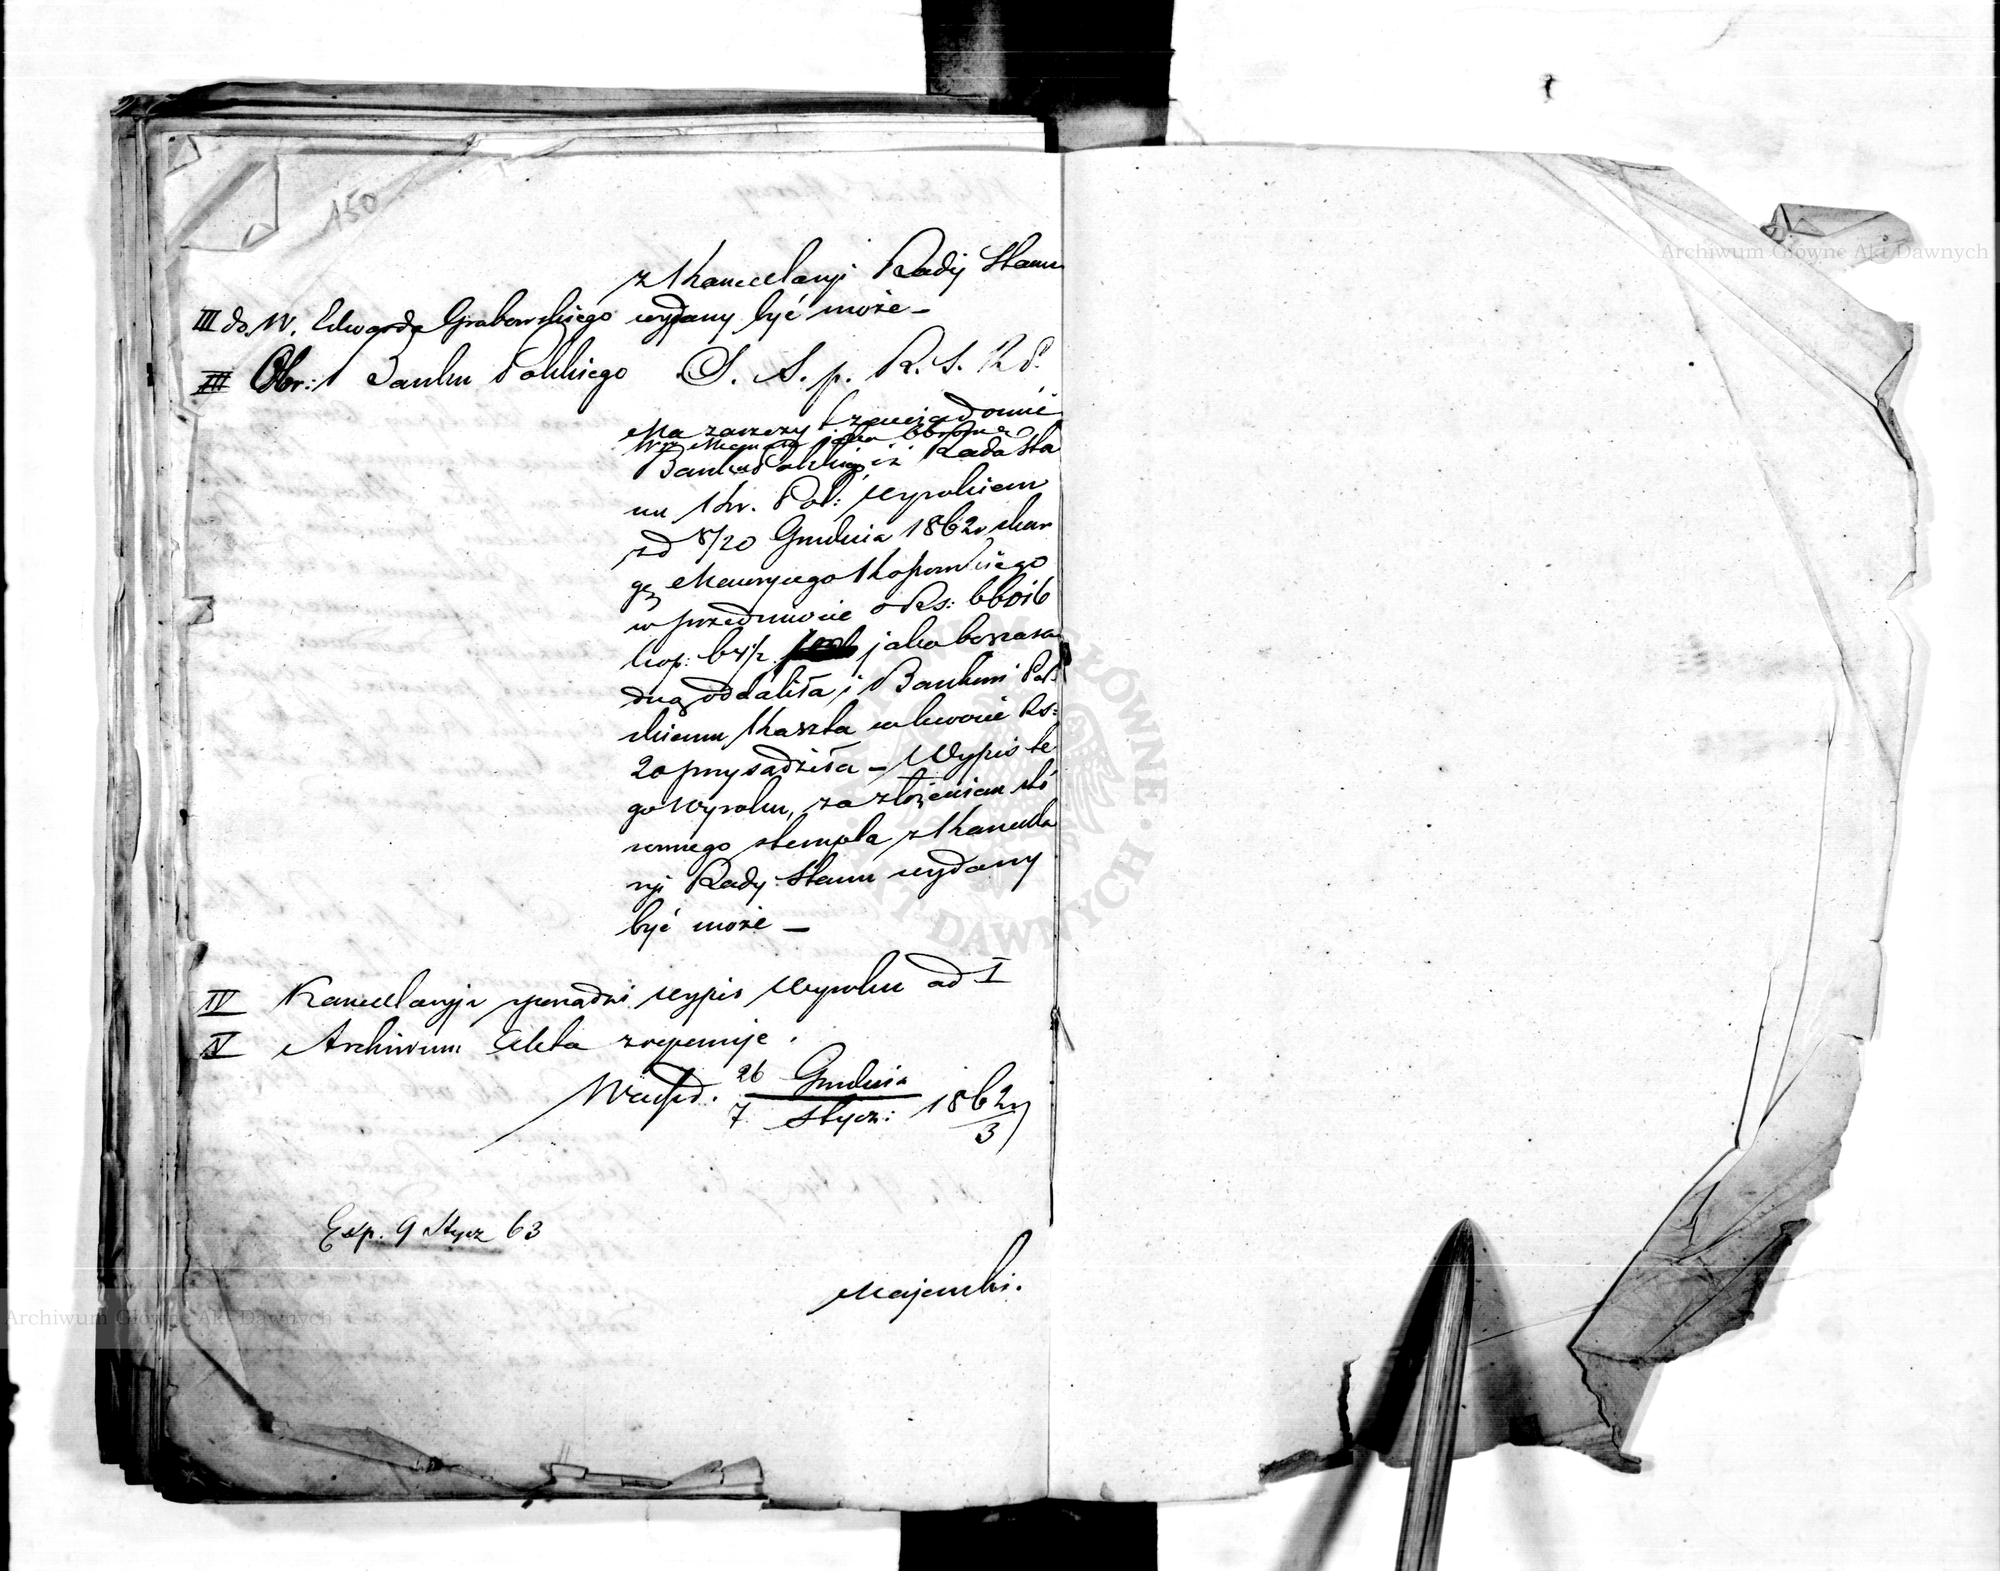 150
z Kancellaryi Rady Stanu
III do W. Edwarda Grabowskiego wydany być może –
III Obr: Banku Polskiego S. S. p. R. S. K P.
Ma zaszczyt zawiadomić
W. jako Obrońcę
Banku Polskiego, iż Rada Sta
nu Kr. Pol: wyrokiem
z d 8/20 Grudnia 1862 r skar
gę Maurycego Koposowskiego
w przedmiocie o Rs: 66016
kop: 64½ jako bezzasa
dną oddaliła i Bankowi Pol-
skiemu Koszta w kwocie Rs:
20 przysądziła – Wypis te
go Wyroku, za złożeniem sto
sownego stempla z Kancella
ryi Rady Stanu wydany
być może –
IV Kancellaryja sporządzi wypis Wyroku ad I
V Archiwum Akta zreponuje.
26 Grudnia
7 Stycz: 1862/3 r
Exp. 9 Stycz 63
Majewski.
Archiwum Główne Akt Dawnych
Archiwum Główne Akt Dawnych